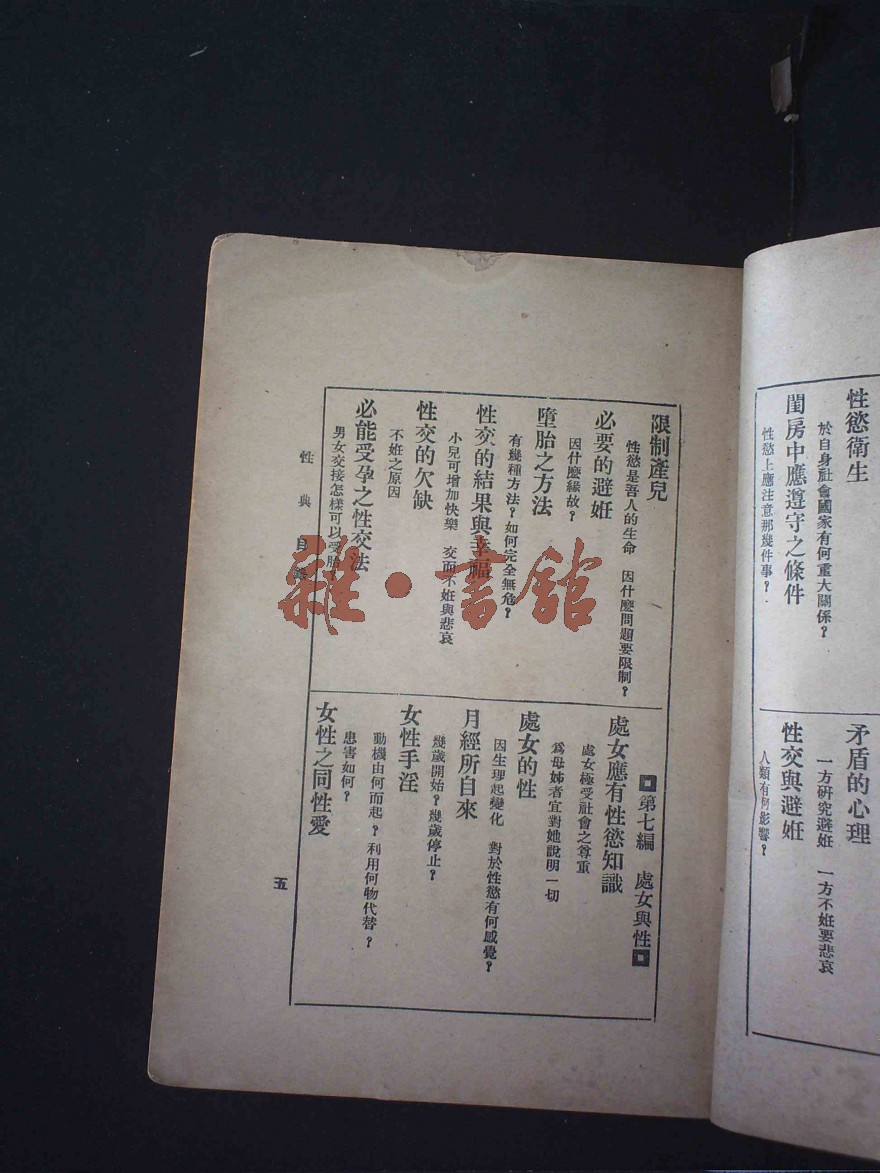 性慾衛生
於自身社會國家有何重大關係？
閨房中應遵守之條件
性慾上應注意那幾件事？
矛盾的心理
一方研究避妊　一方不妊要悲哀
性交與避妊
人類有何影響？
限制產兒
性慾是吾人的生命　因什麼問題要限制？
必要的避妊
因什麼緣故？
墮胎之方法
有幾種方法？如何完全無危？
性交的結果與幸福
小兒可增加快樂　交而不妊與悲哀
性交的欠缺
不妊之原因
必能受孕之性交法
男女交接怎樣可以受胎？
第七編　處女與性
處女應有性慾知識
處女極受社會之尊重
爲母姊者宜對她說明一切
處女的性
因生理起變化　對於性慾有何感覺？
月經所自來
幾歲開始？幾歲停止？
女性手淫
動機由何而起？利用何物代替？
患害如何？
女性之同性愛
性典目
五
雜·書館